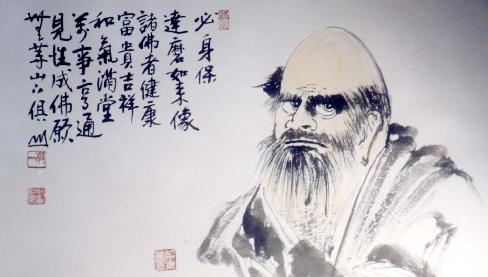 必身保
達磨如来像
諸佛者健康
富貴吉祥
和氣滿堂
萬事亨通
見性成佛願
無等山